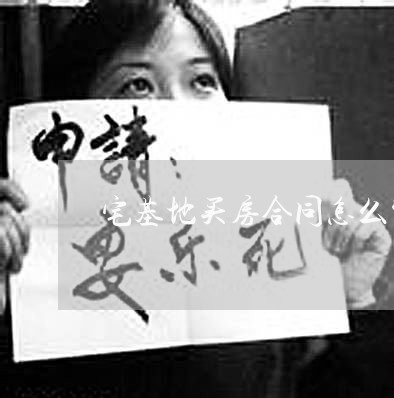 申請：
宅基地买房合同怎么
安乐死